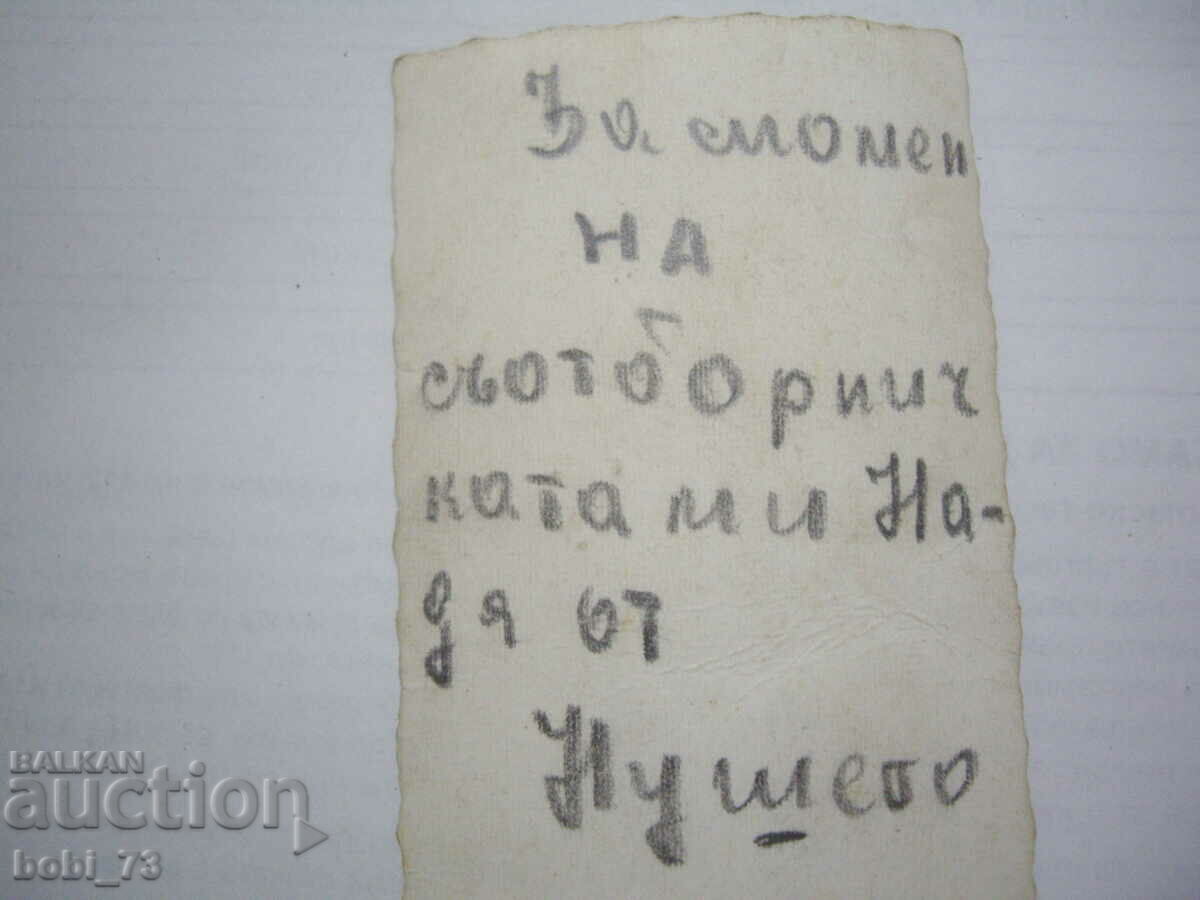 За спомен
на
съотборнич
ката ми На-
дя от
Нушето
BALKAN
auction
bobi_73